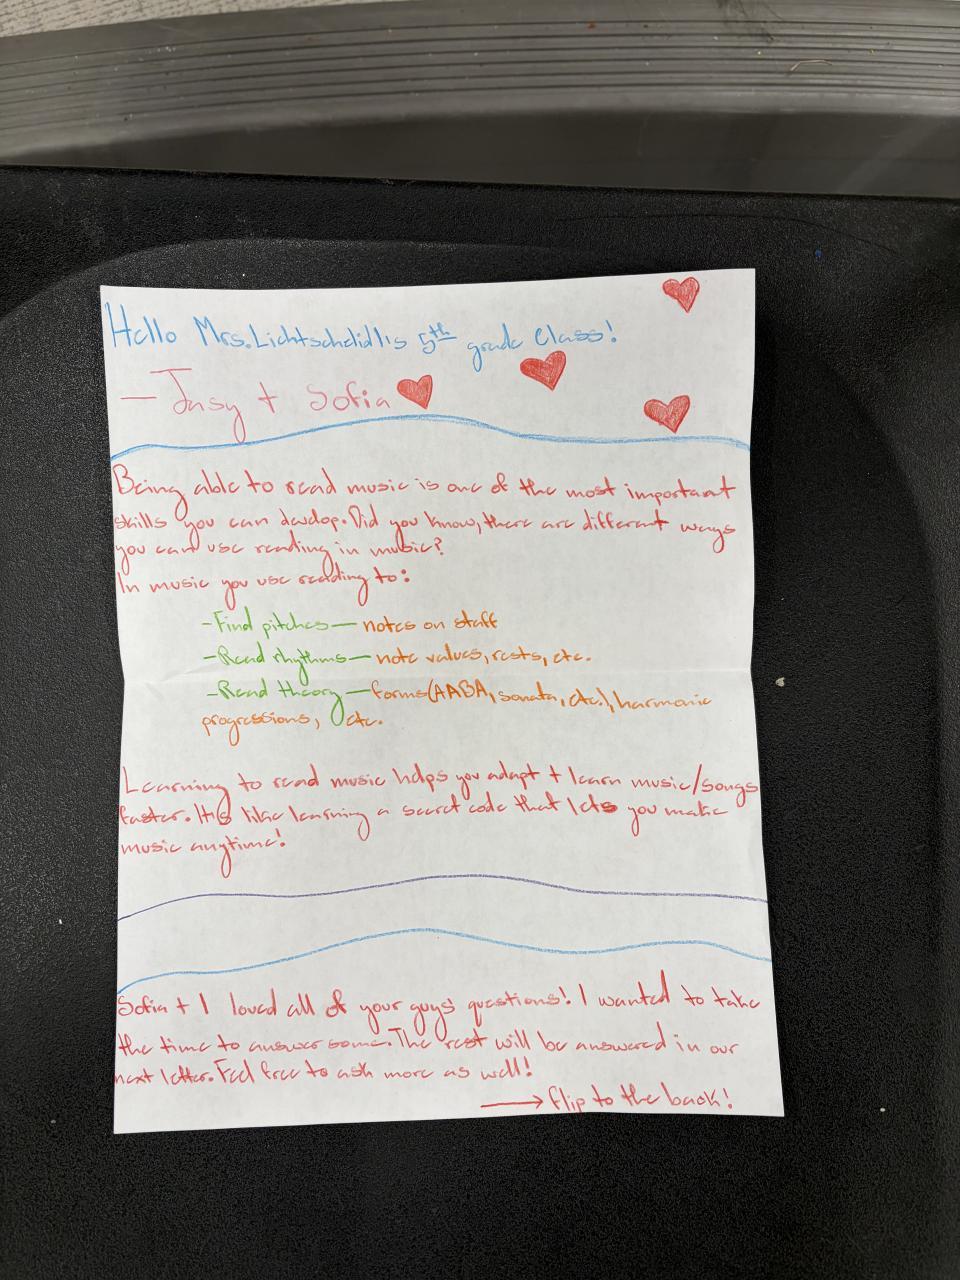 Hello Mrs.Lichtscheidl's 5th grade Class!
— Jasy + Sofia
Being able to read music is one of the most important
skills you can develop. Did you know, there are different ways
you can use reading in music?
In music you use reading to:
-Find pitches— notes on staff
-Read rhythms— note values, rests, etc.
-Read theory—forms(AABA, sonata, etc.), harmonic
progressions, etc.
Learning to read music helps you adapt + learn music/songs
faster. It's like learning a secret code that lets you make
music anytime!
Sofia + I loved all of your guys' questions! I wanted to take
the time to answer some. The rest will be answered in our
next letter. Feel free to ask more as well!
→ flip to the back!